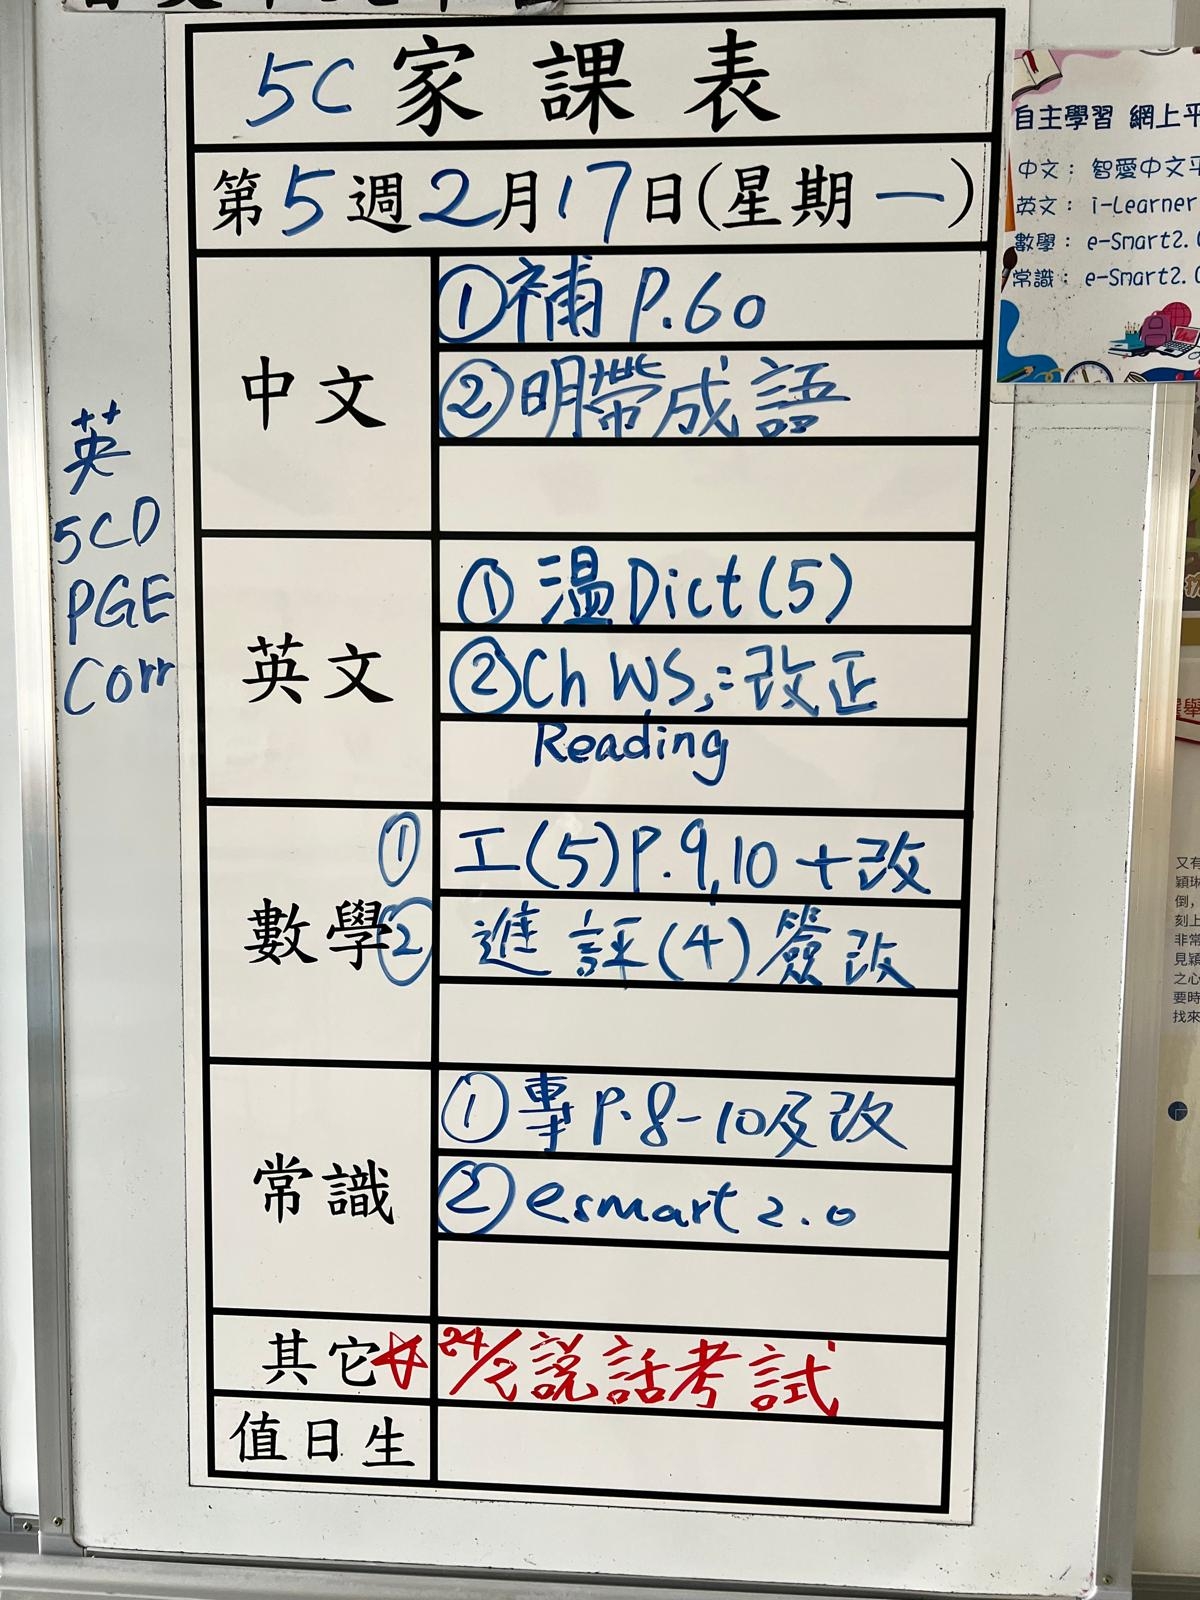 5C 家課表
第5週2月17日(星期一)
中文
①補 P.60
②明帶成語
英文
①溫Dict(5)
②Ch WS,:改正
Reading
英
5CD
PGE
Corr
數學
① 工(5)P.9,10 + 改
② 進評(4)簽改
常識
①專P.8-10及改
②esmart 2.0
其它
☆24/2說話考試
值日生
自主學習 網上平
中文： 智愛中文平
英文： i-Learner
數學： e-Smart2.0
常識： e-Smart2.0
又有
穎琳
倒，
刻上
非常
見穎
之心
要時
找來